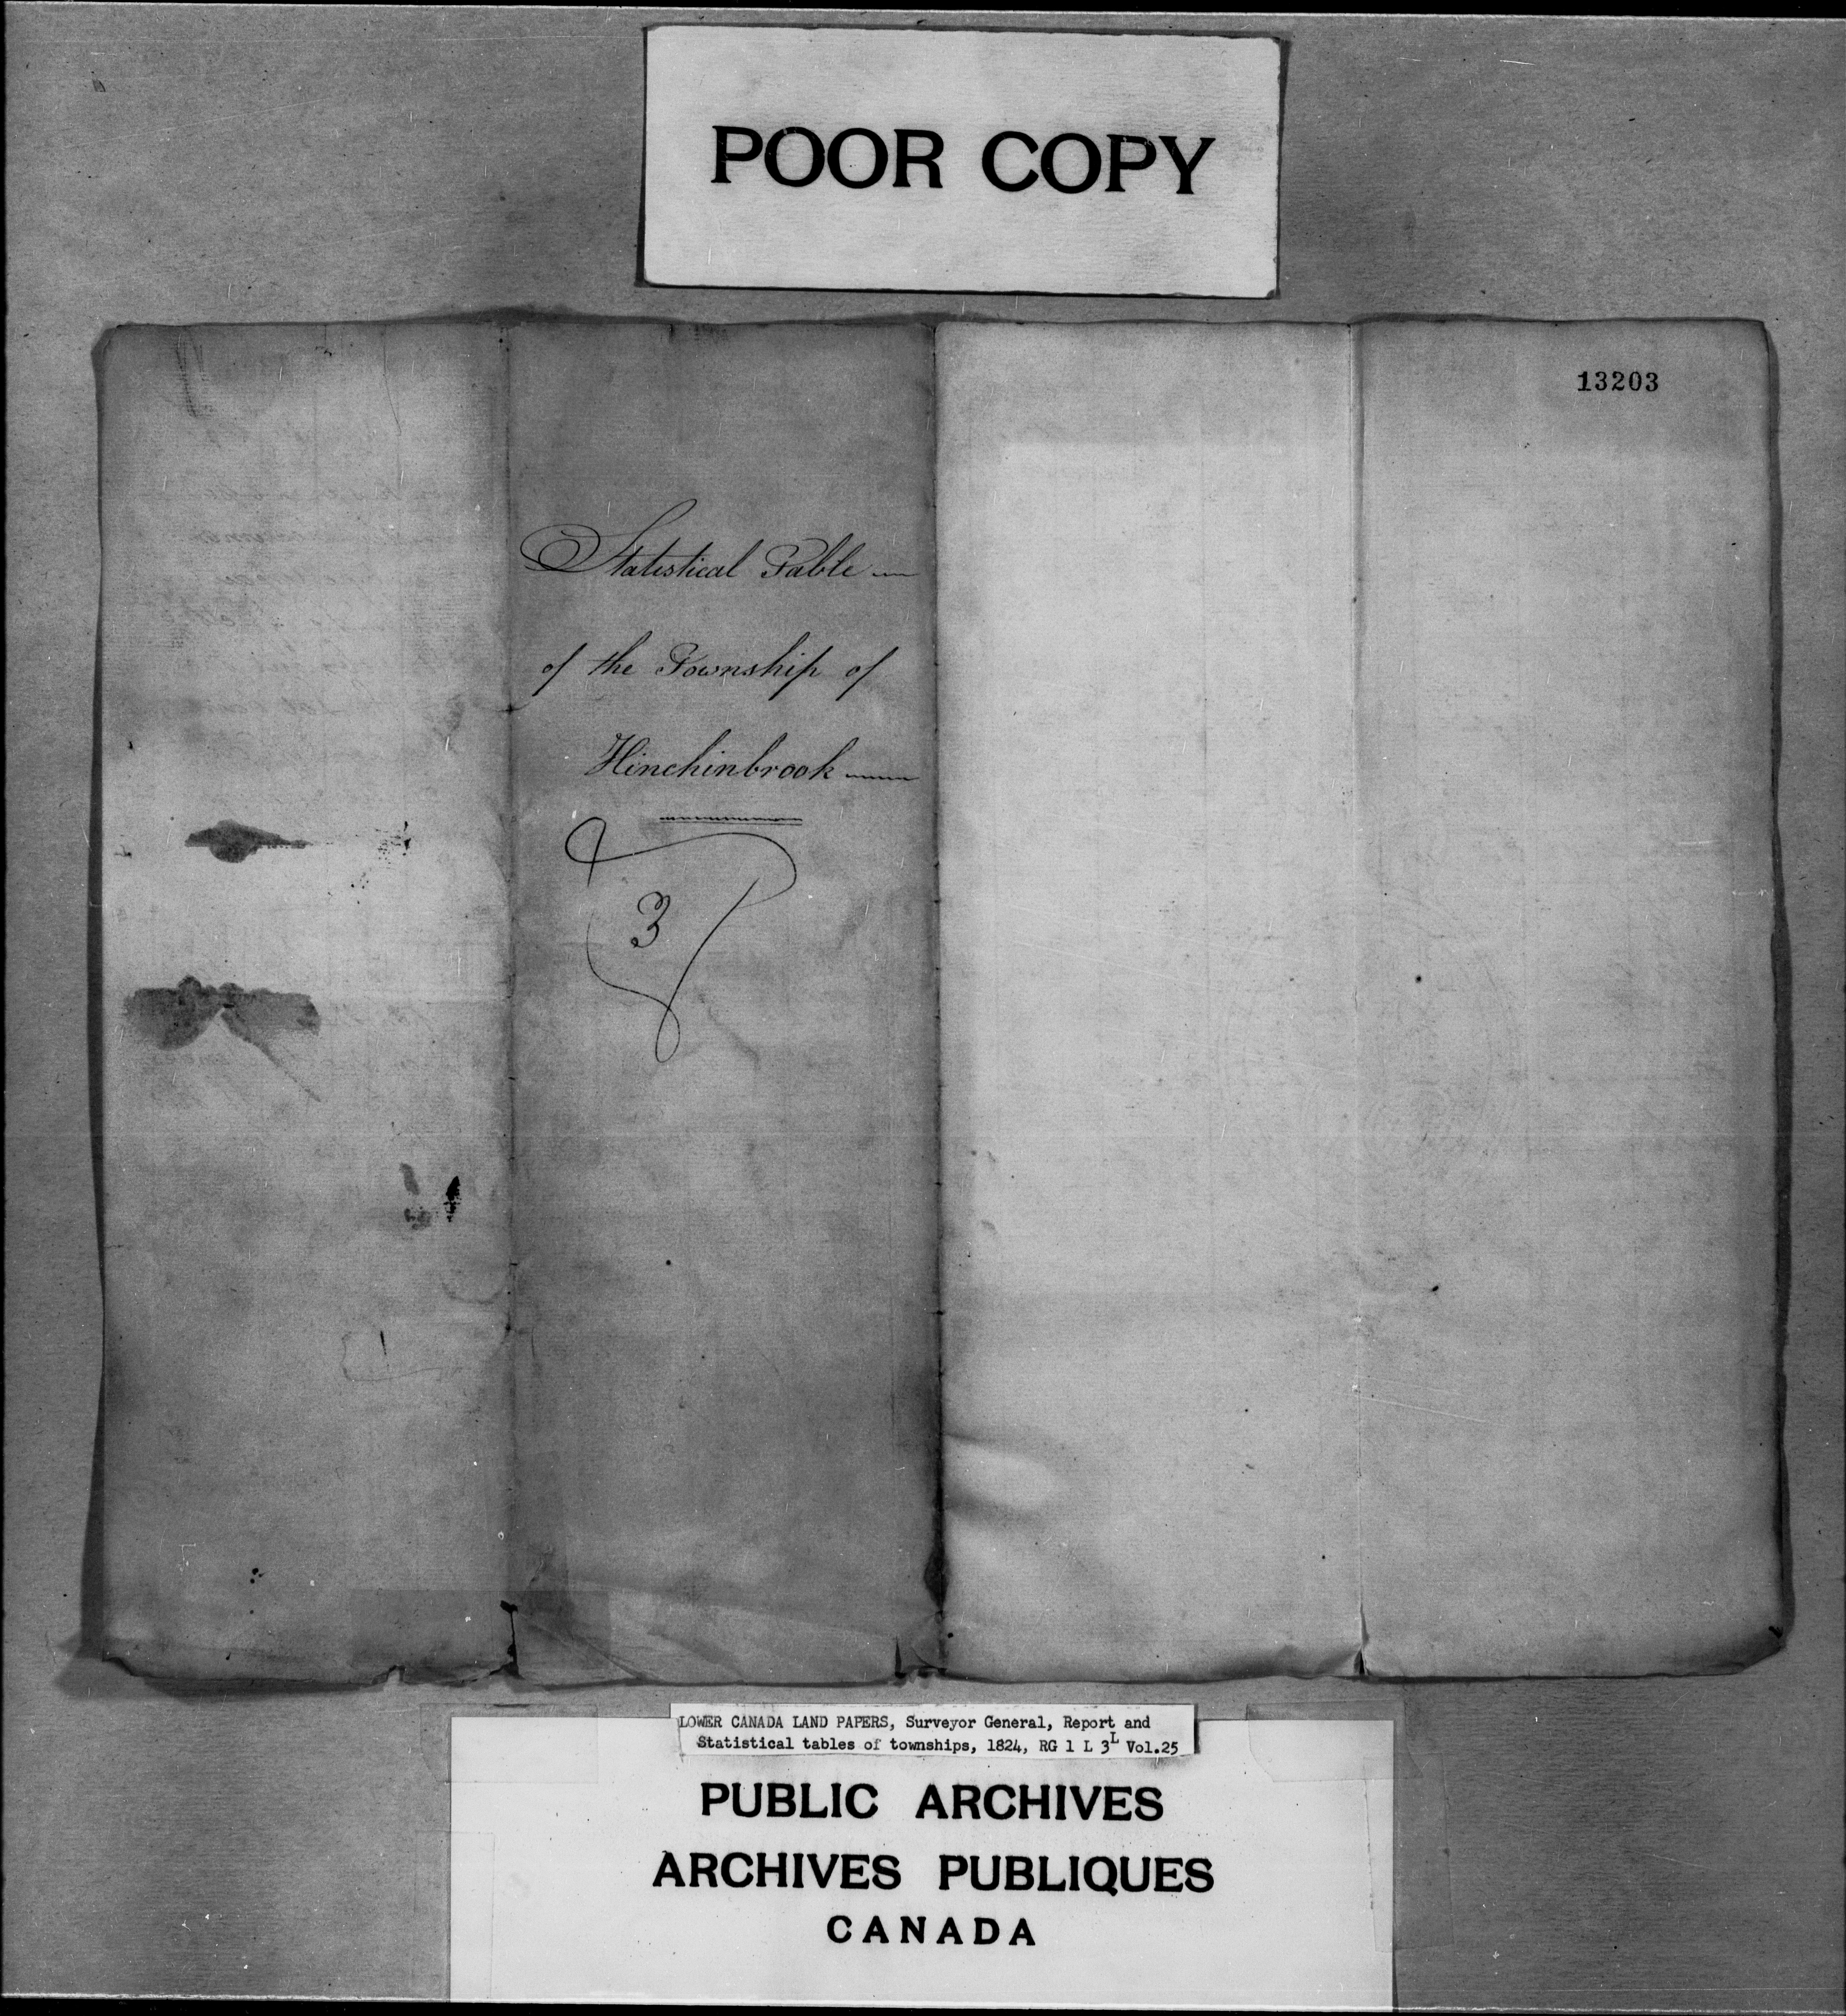 POOR COPY
13203
Statistical Table
of the Township of
Hinchinbrook
3
LOWER CANADA LAND PAPERS, Surveyor General, Report and
Statistical tables of townships, 1824, RG 1 L 3L Vol.25
PUBLIC ARCHIVES
ARCHIVES PUBLIQUES
CANADA